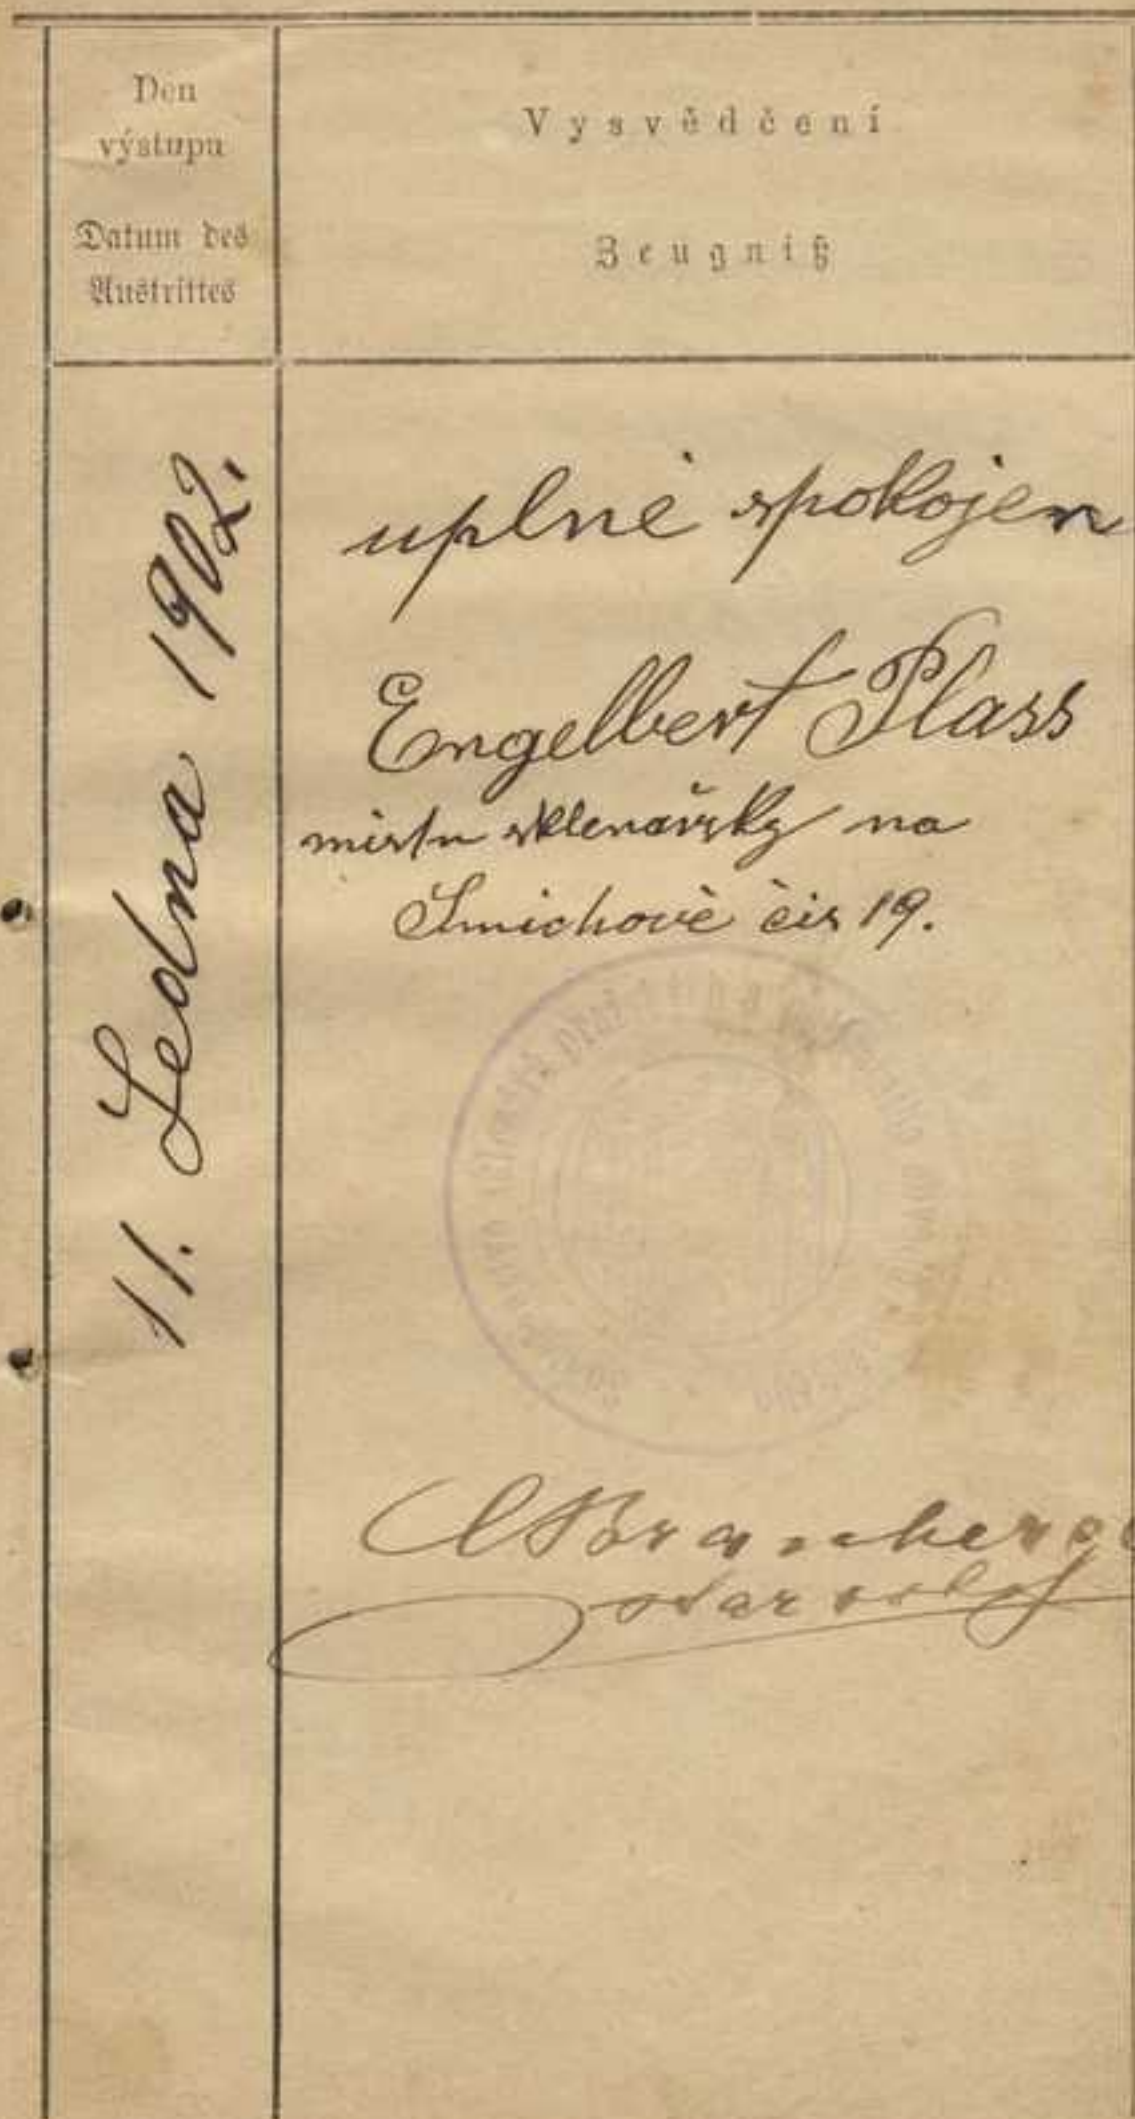 Den
výstupu
Datum des
Austrittes
Vysvědčení
Zeugniß
11. Ledna 1902.
uplně spokojen
Engelbert Plass
mistr sklenářský na
Smichově čis 19.
starosta